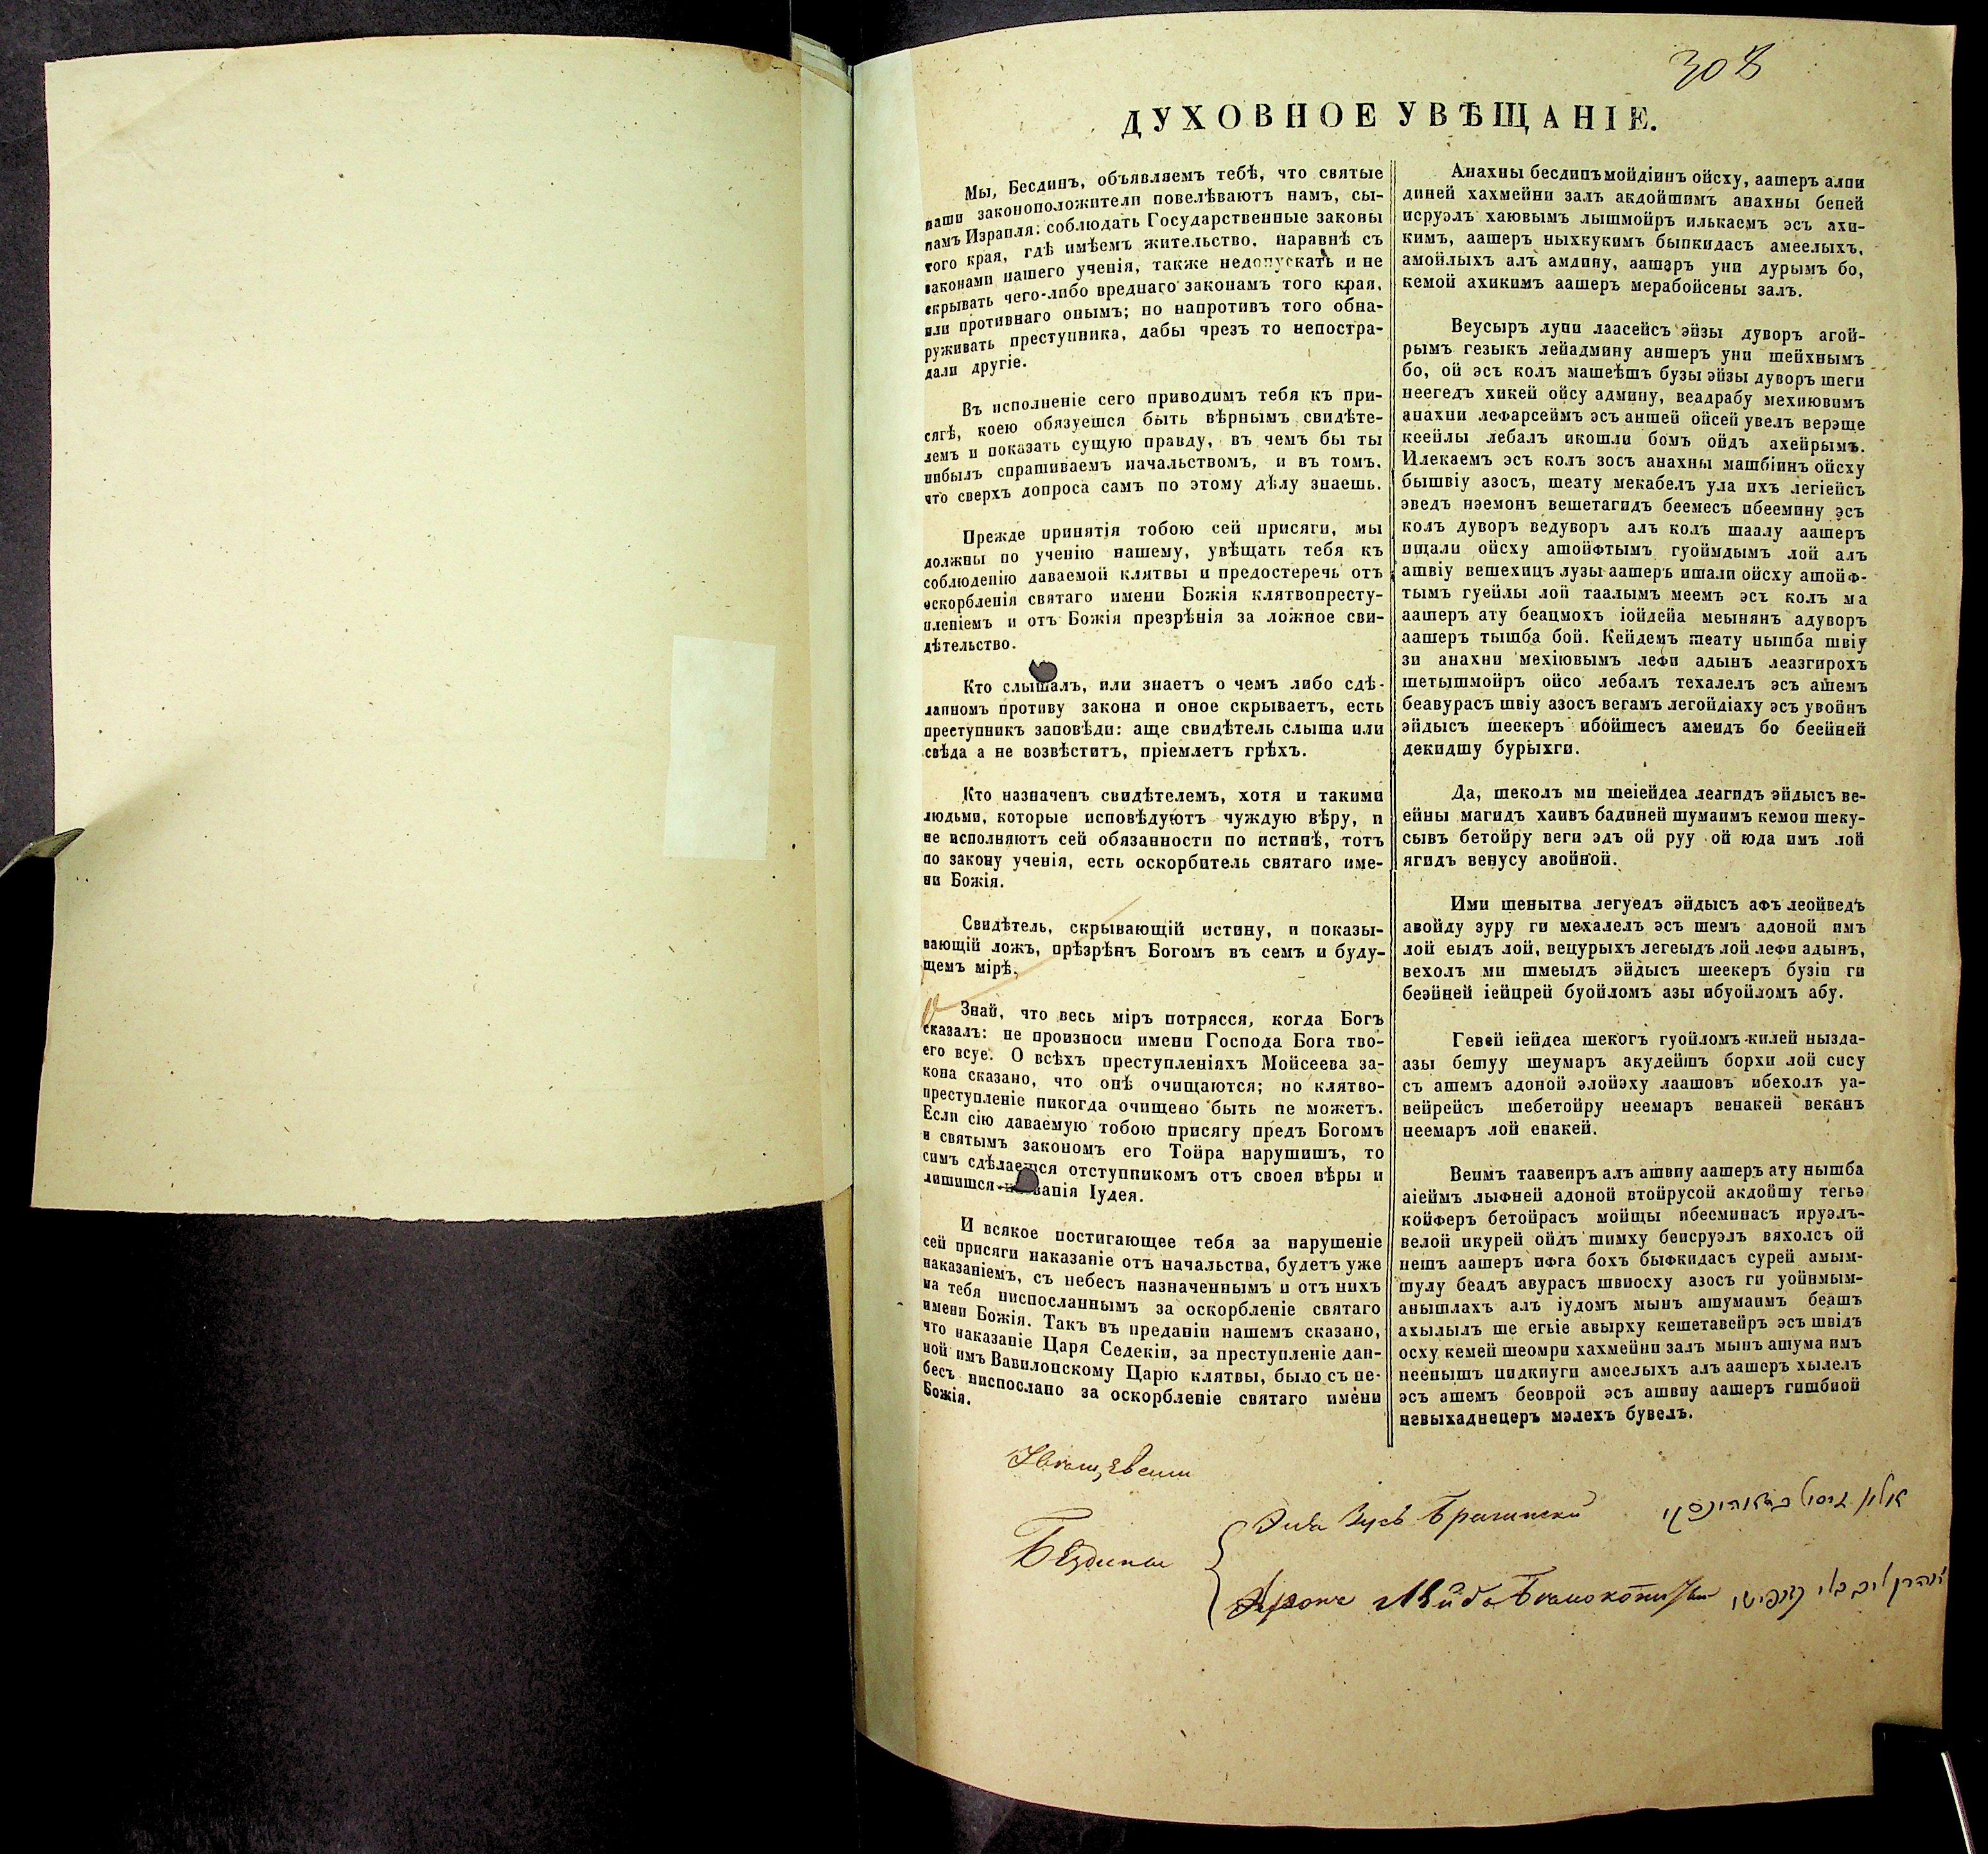 308
ДУХОВНОЕ УВѢЩАНІЕ.
Мы, Бесдинъ, объявляемъ тебѣ, что святые
наши законоположители повелѣваютъ намъ, сы-
намъ Израиля: соблюдать Государственные законы
того края, гдѣ имѣемъ жительство, наравнѣ съ
законами нашего ученія, также недопускать и не
скрывать чего-либо вреднаго законамъ того края,
или противнаго онымъ; но напротивъ того обна-
руживать преступника, дабы чрезъ то непостра-
дали другіе.
Въ исполненіе сего приводимъ тебя къ при-
сягѣ, коею обязуешся быть вѣрнымъ свидѣте-
лемъ и показать сущую правду, въ чемъ бы ты
нибылъ спрашиваемъ начальствомъ, и въ томъ,
что сверхъ допроса самъ по этому дѣлу знаешь.
Прежде принятія тобою сей присяги, мы
должны по ученію нашему, увѣщать тебя къ
соблюденію даваемой клятвы и предостеречь отъ
оскорбленія святаго имени Божія клятвопресту-
пленіемъ и отъ Божія презрѣнія за ложное сви-
дѣтельство.
Кто слышалъ, или знаетъ о чемъ либо сдѣ-
ланномъ противу закона и оное скрываетъ, есть
преступникъ заповѣди: аще свидѣтель слыша или
свѣда а не возвѣститъ, пріемлетъ грѣхъ.
Кто назначенъ свидѣтелемъ, хотя и такими
людьми, которые исповѣдуютъ чуждую вѣру, и
не исполняютъ сей обязанности по истинѣ, тотъ
по закону ученія, есть оскорбитель святаго име-
ни Божія.
Свидѣтель, скрывающій истину, и показы-
вающій ложъ, прѣзрѣнъ Богомъ въ семъ и буду-
щемъ мірѣ.
Знай, что весь міръ потрясся, когда Богъ
сказалъ: не произноси имени Господа Бога тво-
его всуе. О всѣхъ преступленіяхъ Мойсеева за-
кона сказано, что онѣ очищаются; но клятво-
преступленіе никогда очищено быть не можетъ.
Если сію даваемую тобою присягу предъ Богомъ
и святымъ закономъ его Тойра нарушишъ, то
симъ сдѣлаешся отступникомъ отъ своея вѣры и
лишишся Іудея.
И всякое постигающее тебя за нарушеніе
сей присяги наказаніе отъ начальства, будетъ уже
наказаніемъ, съ небесъ назначеннымъ и отъ нихъ
на тебя ниспосланнымъ за оскорбленіе святаго
имени Божія. Такъ въ преданіи нашемъ сказано,
что наказаніе Царя Седекіи, за преступленіе дан-
ной имъ Вавилонскому Царю клятвы, было съ не-
бесъ ниспослано за оскорбленіе святаго имени
Божія.
Анахны бесдинъ мойдіинъ ойсху, аашеръ алпи
диней хахмейни залъ акдойшимъ анахны беней
исруэлъ хаювымъ лышмойръ илькаемъ эсъ ахи-
кимъ, аашеръ ныхкукимъ быпкидасъ амеелыхъ,
амойлыхъ алъ амдину, аашэръ уни дурымъ бо,
кемой ахикимъ аашеръ мерабойсены залъ.
Веусыръ луни лаасейсъ эйзы дуворъ агой-
рымъ гезыкъ лейадмину аншеръ уни шейхнымъ
бо, ой эсъ колъ машеѣшъ бузы эйзы дуворъ шеги
неегедъ хикей ойсу админу, веадрабу мехиювимъ
анахни лефарсеймъ эсъ аншей ойсей увелъ верэше
кеейлы лебалъ икошли бомъ ойдъ ахейрымъ.
Илекаемъ эсъ колъ зосъ анахны машбіинъ ойсху
бышвіу азосъ, шеату мекабелъ ула ихъ легіейсъ
эведъ нэемонъ вешетагидъ беемесъ ибеемину эсъ
колъ дуворъ ведуворъ алъ колъ шаалу аашеръ
ищали ойсху ашойфтымъ гуоймдымъ лой алъ
ашвіу вешехицъ лузы аашеръ ишали ойсху ашойф-
тымъ гуейлы лой таалымъ меемъ эсъ колъ ма
аашеръ ату беацмохъ іойдейа меынянъ адуворъ
аашеръ тышба бой. Кейдемъ шеату нышба швіу
зи анахни мехіювымъ лефи адынъ леазгирохъ
шетышмойръ ойсо лебалъ техалелъ эсъ ашемъ
беавурасъ швіу азосъ вегамъ легойдіаху эсъ увойнъ
эйдысъ шеекеръ ибойшесъ амеидъ бо беейней
декидшу бурыхги.
Да, шеколъ ми шеіейдеа леагидъ эйдысъ ве-
ейны магидъ хаивъ бадиней шумаимъ кемои шеку-
сывъ бетойру веги эдъ ой руу ой юда имъ лой
ягидъ венусу авойной.
Ими шенытва легуедъ эйдысъ афъ леойведъ
авойду зуру ги мехалелъ эсъ шемъ адоной имъ
лой еыдъ лой, вецурыхъ легеыдъ лой лефи адынъ,
вехолъ ми шмеыдъ эйдысъ шеекеръ бузіи ги
беэйней іейцрей буойломъ азы ибуойломъ абу.
Гевей іейдеа шекогъ гуойломъ килей нызда-
азы бешуу шеумаръ акудейшъ борхи лой сису
съ ашемъ адоной элойэху лаашовъ ибехолъ уа-
вейрейсъ шебетойру неемаръ венакей веканъ
неемаръ лой енакей.
Веимъ таавеиръ алъ ашвиу аашеръ ату нышба
аіеймъ лыфней адоной втойрусой акдойшу тегьэ
койферъ бетойрасъ мойщы ибесминасъ ируэлъ-
велой икурей ойдъ шимху беисруэлъ вяхолсъ ой
нешъ аашеръ ифга бохъ быфкидасъ сурей амым-
шулу беадъ авурасъ швиосху азосъ ги уойнмым-
анышлахъ алъ іудомъ мынъ ашумаимъ беашъ
ахылылъ ше егьіе авырху кешетавейръ эсъ швідъ
осху кемей шеомри хахмейни залъ мынъ ашума имъ
неенышъ цидкиуги амселыхъ алъ аашеръ хылелъ
эсъ ашемъ беоврой эсъ ашвиу аашеръ гишбиой
невыхаднецеръ мэлехъ бувелъ.